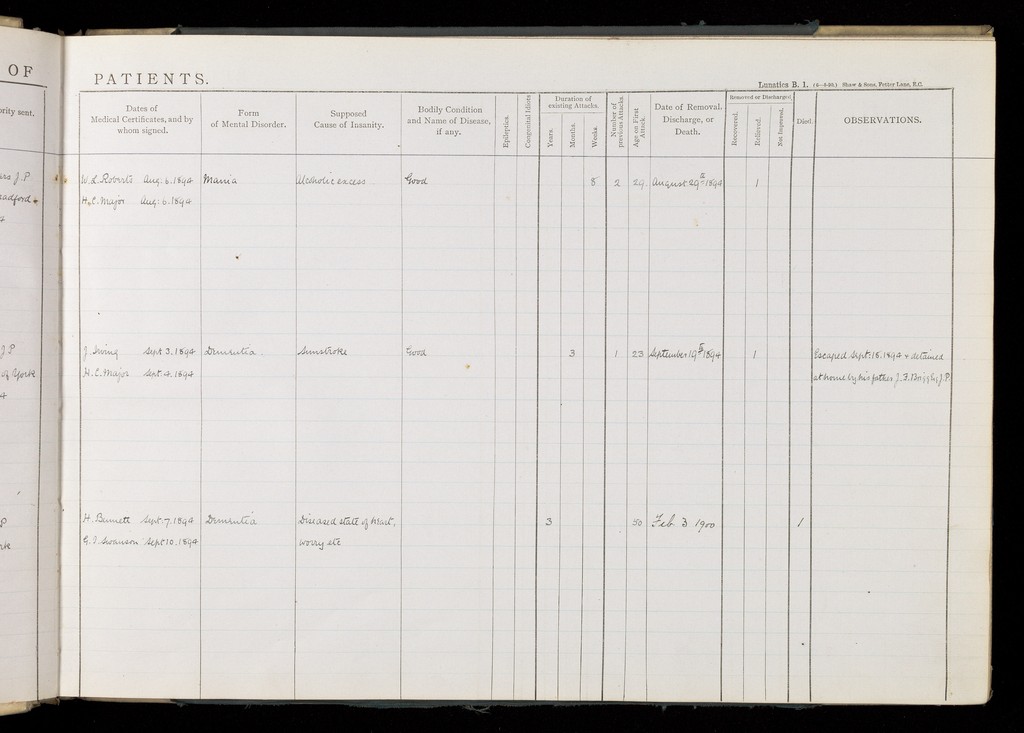 OF
PATIENTS.
Lunatics B. 1. Shaw & Sons, Fetter Lane, E.C.
ority sent,
Dates of
Medical Certificates, and by
whom signed.
Form
of Mental Disorder.
Supposed
Cause of Insanity.
Bodily Condition
and Name of Disease,
if any.
Epileptics.
Congenital Idiots
Duration of
existing Attacks.
Years.
Months.
Weeks.
Number of
previous Attacks.
Age on First
Attack.
Date of Removal.
Discharge, or
Death.
Removed or Discharged.
Recovered.
Relieved.
Not Improved.
Died.
OBSERVATIONS.
J.P.
W. L. Roberts Aug: 6. 1894 Mania Alcoholic excess Good 8 2 29. August 29th 1894 1
adford
H. C. Major Aug: 6. 1894
J.P
J. Irving Sept. 3. 1894 Dementia Sunstroke Good 3 1 23 September 19th 1894 1 Escaped Sept: 15. 1894 & detained
of York
H. C. Major Sept. 4. 1894 at home by his father J. F. J.P.
H. Bennett Sept. 7. 1894 Dementia Diseased state of heart, 3 50 Feb 3 1900 1
G. I. Swanson Sept 10. 1894 worry etc